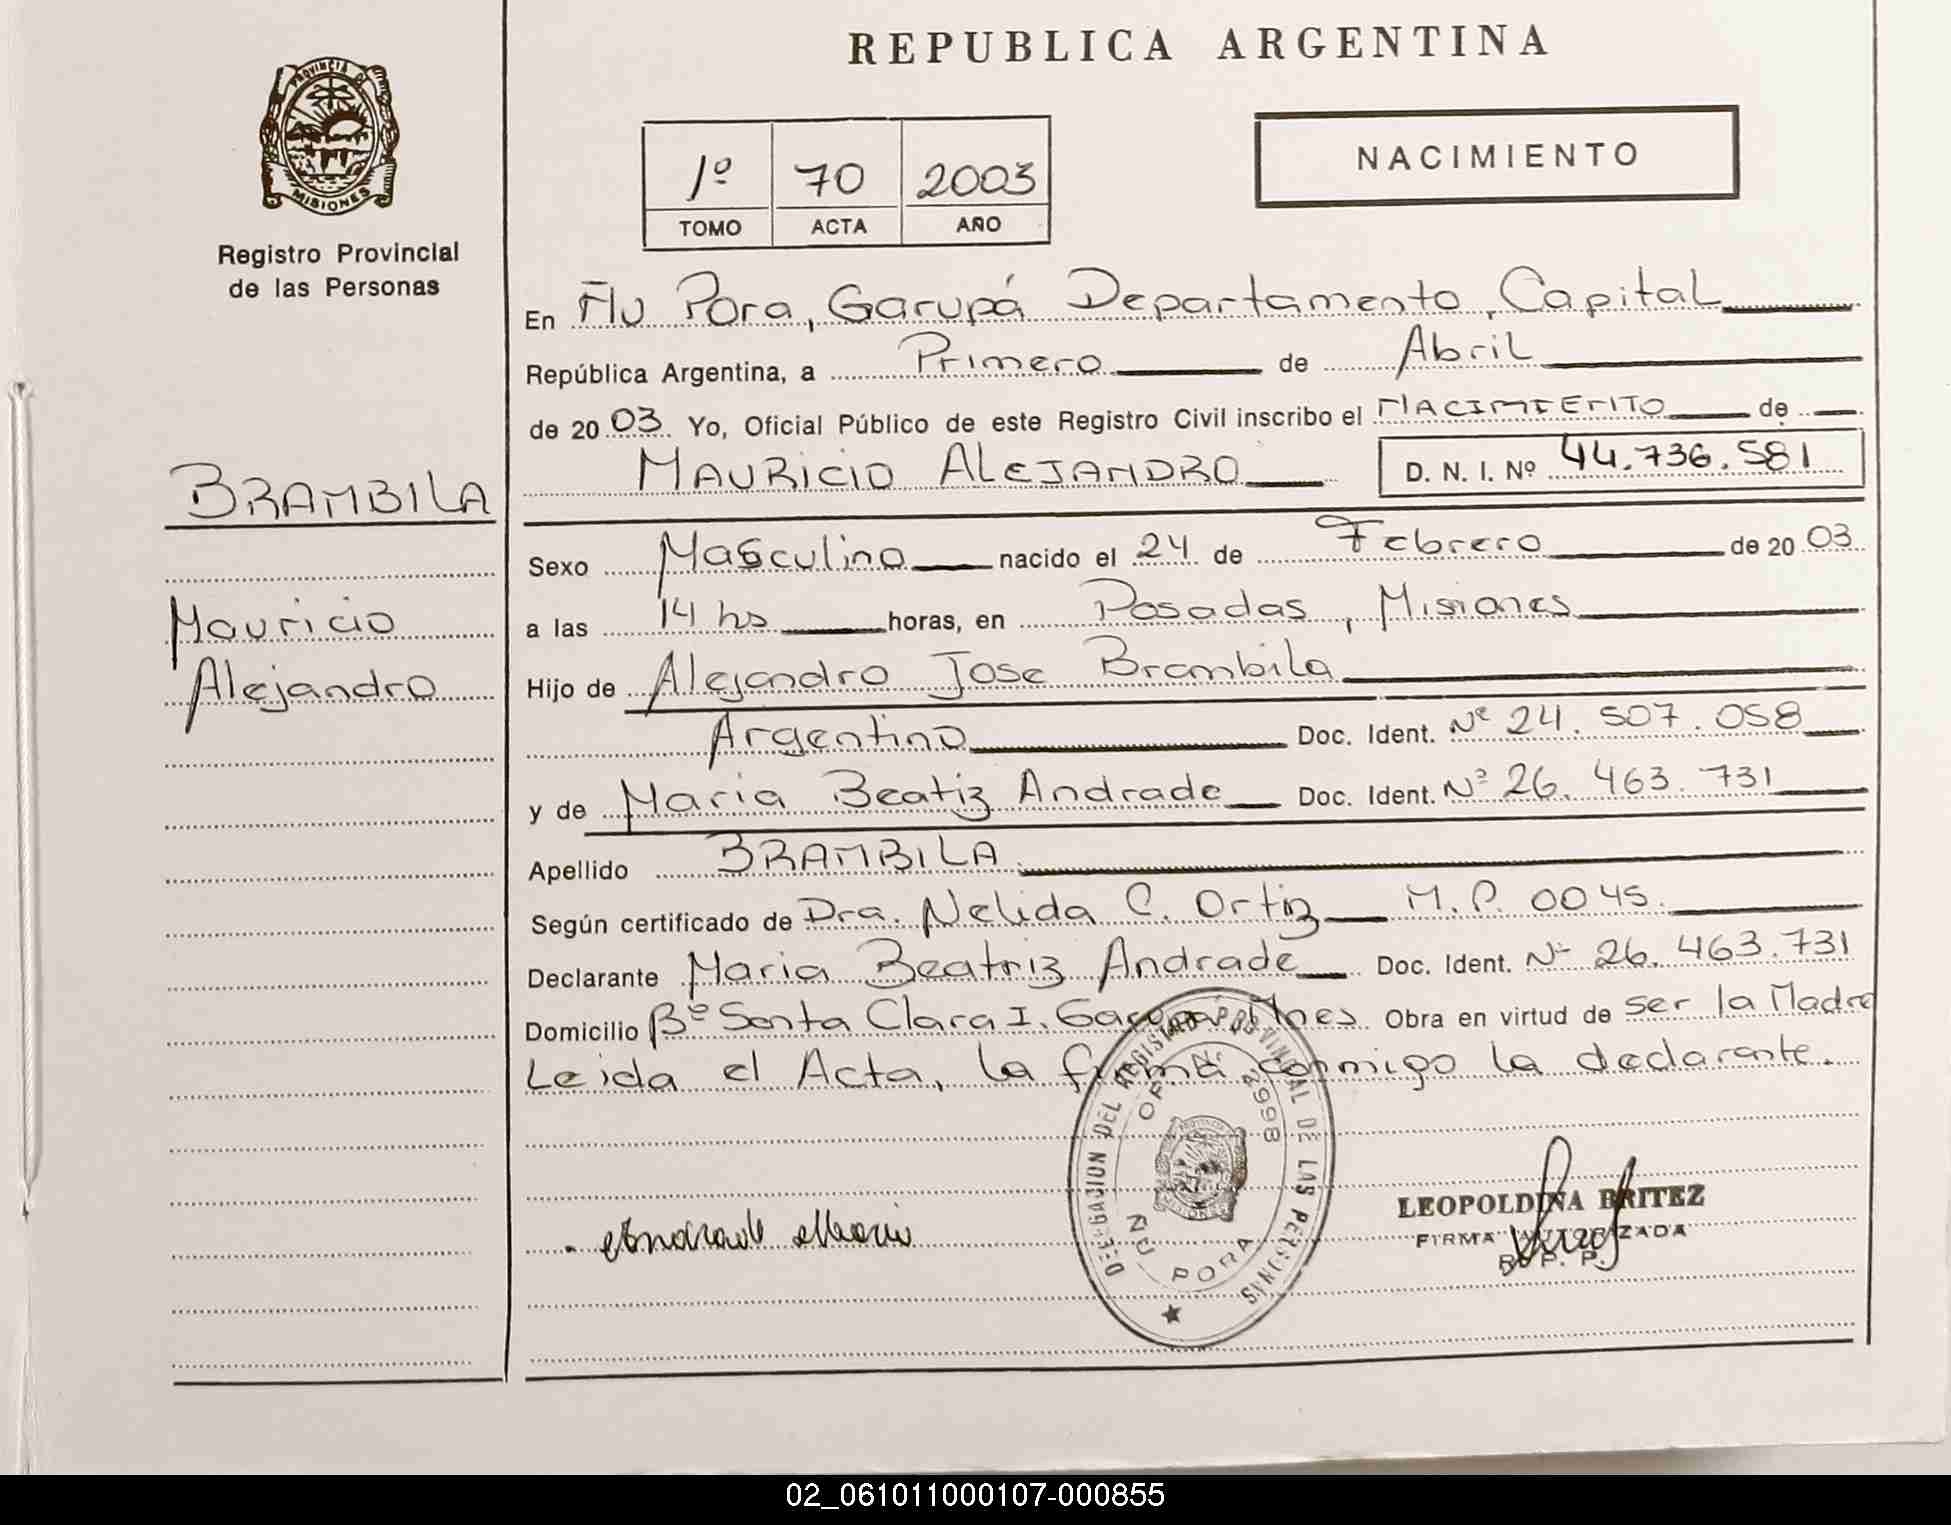 REPUBLICA ARGENTINA
PROVINCIA DE
MISIONES
Registro Provincial
de las Personas
1º 70 2003
TOMO ACTA AÑO
NACIMIENTO
En Ñu Pora, Garupá Departamento, Capital
República Argentina, a Primero de Abril
de 2003 Yo, Oficial Público de este Registro Civil inscribo el NACIMIENTO de
MAURICIO ALEJANDRO D. N. I. Nº 44.736.581
BRAMBILA
Mauricio
Alejandro
Sexo Masculino nacido el 24 de Febrero de 2003
a las 14 hs horas, en Posadas, Misiones
Hijo de Alejandro Jose Brambila
Argentino Doc. Ident. Nº 24.507.058
y de Maria Beatiz Andrade Doc. Ident. Nº 26.463.731
Apellido BRAMBILA
Según certificado de Dra. Nelida C. Ortiz M.P. 0045.
Declarante Maria Beatriz Andrade Doc. Ident. Nº 26.463.731
Domicilio Bº Santa Clara I. Garupá Mnes Obra en virtud de ser la Madre
Leida el Acta, la firma conmigo la declarante.
DELEGACION DEL REGISTRO PROVINCIAL DE LAS PERSONAS
OF. Nº 2998
ÑU PORA
Andrade Maria
LEOPOLDINA BRITEZ
FIRMA AUTORIZADA
R. P. P.
02_061011000107-000855